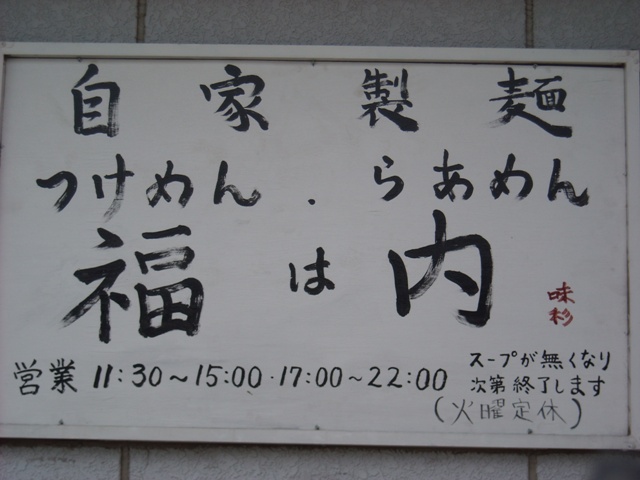 自家製麺
つけめん.らあめん
福は内
味杉
営業 11:30~15:00·17:00~22:00
スープが無くなり
次第終了します
(火曜定休)